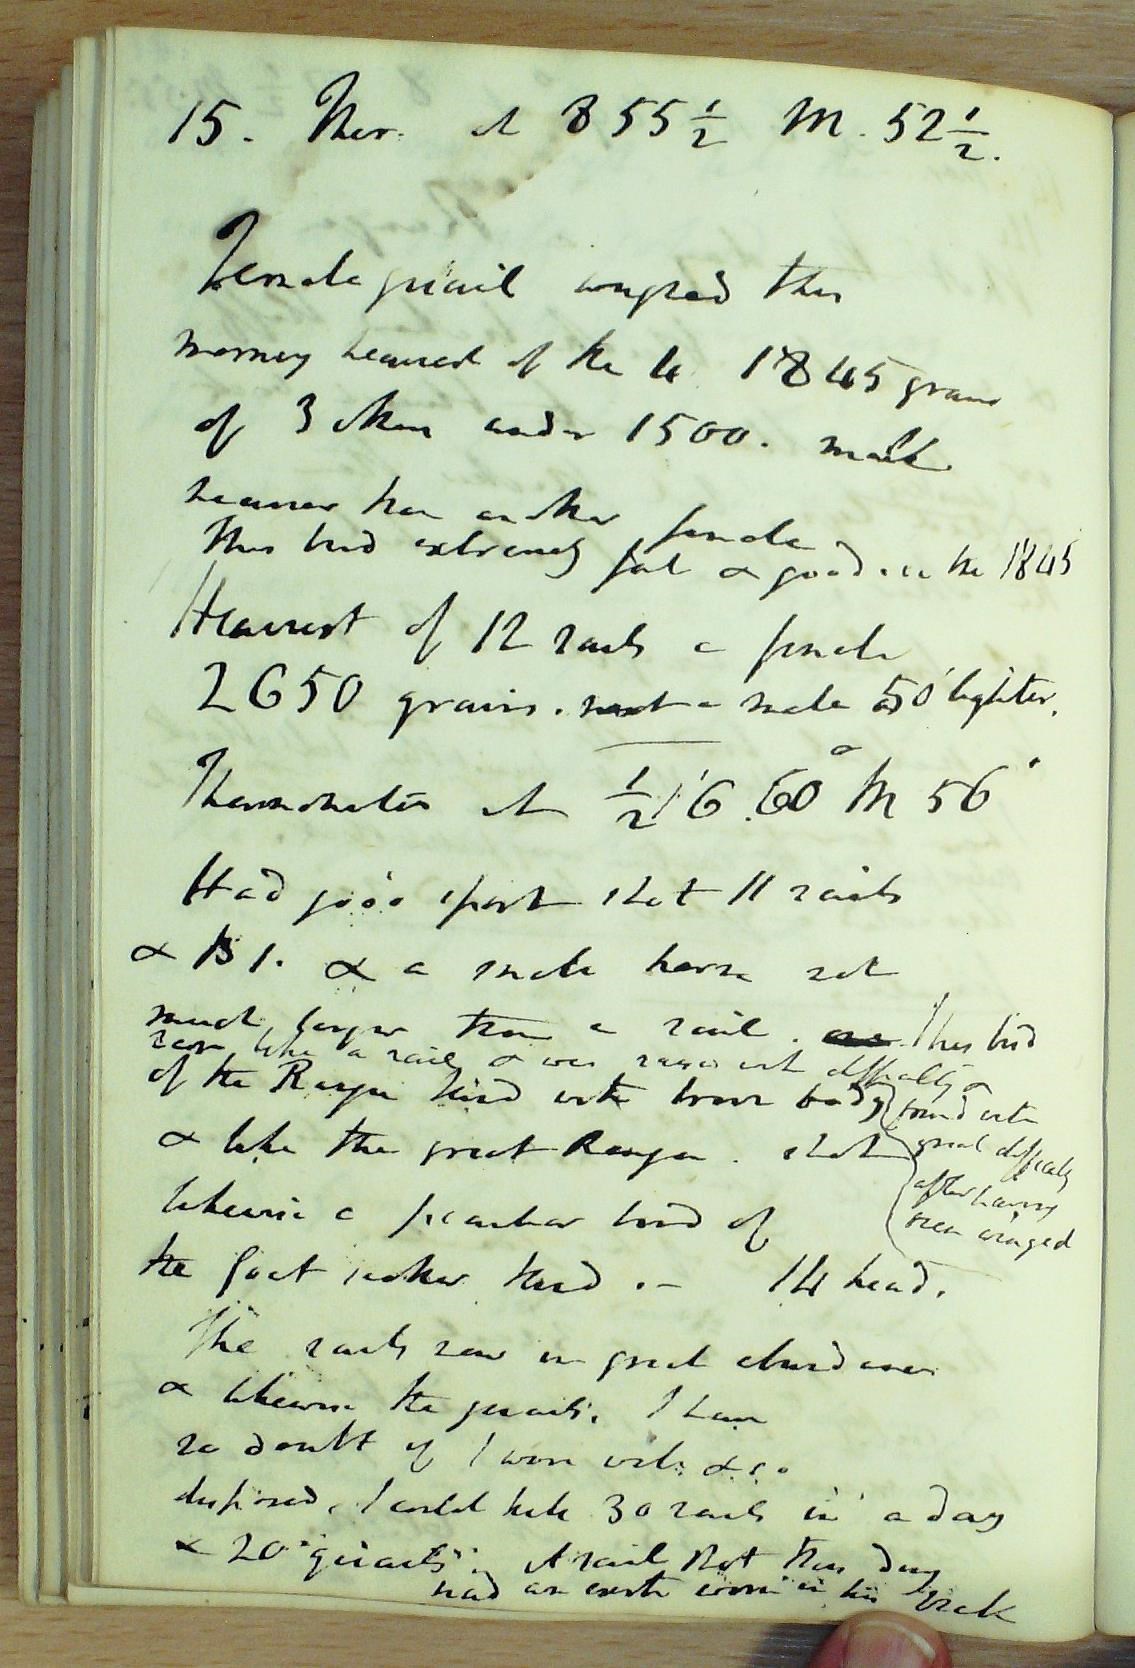 15. Ther. at 8 55 1/2 M. 52 1/2.
Female quail weighed this
morning heaviest of the 4 1845 grains
of 3 others under 1500. male
heavier than another female
this bird extremely fat & good. i.e the 1845
Heaviest of 12 rails a female
2650 grains. a male 50 lighter.
Thermometer at 1/2 6 60° M 56°
Had good sport shot 11 rails
& 1. & a male heron not
much larger than a rail. This bird
ran like a rail & was raised with difficulty &
of the Ranger kind with brown body
found with
great difficulty
after having
been winged
& like the great Ranger. shot
likewise a peculiar bird of
the goat sucker kind. - 14 head.
The rails now in great abundance
& likewise the quails. I have
no doubt if I were well & so
disposed, I could take 30 rails in a day
& 20 quails. A rail shot this day
had an worm in his neck